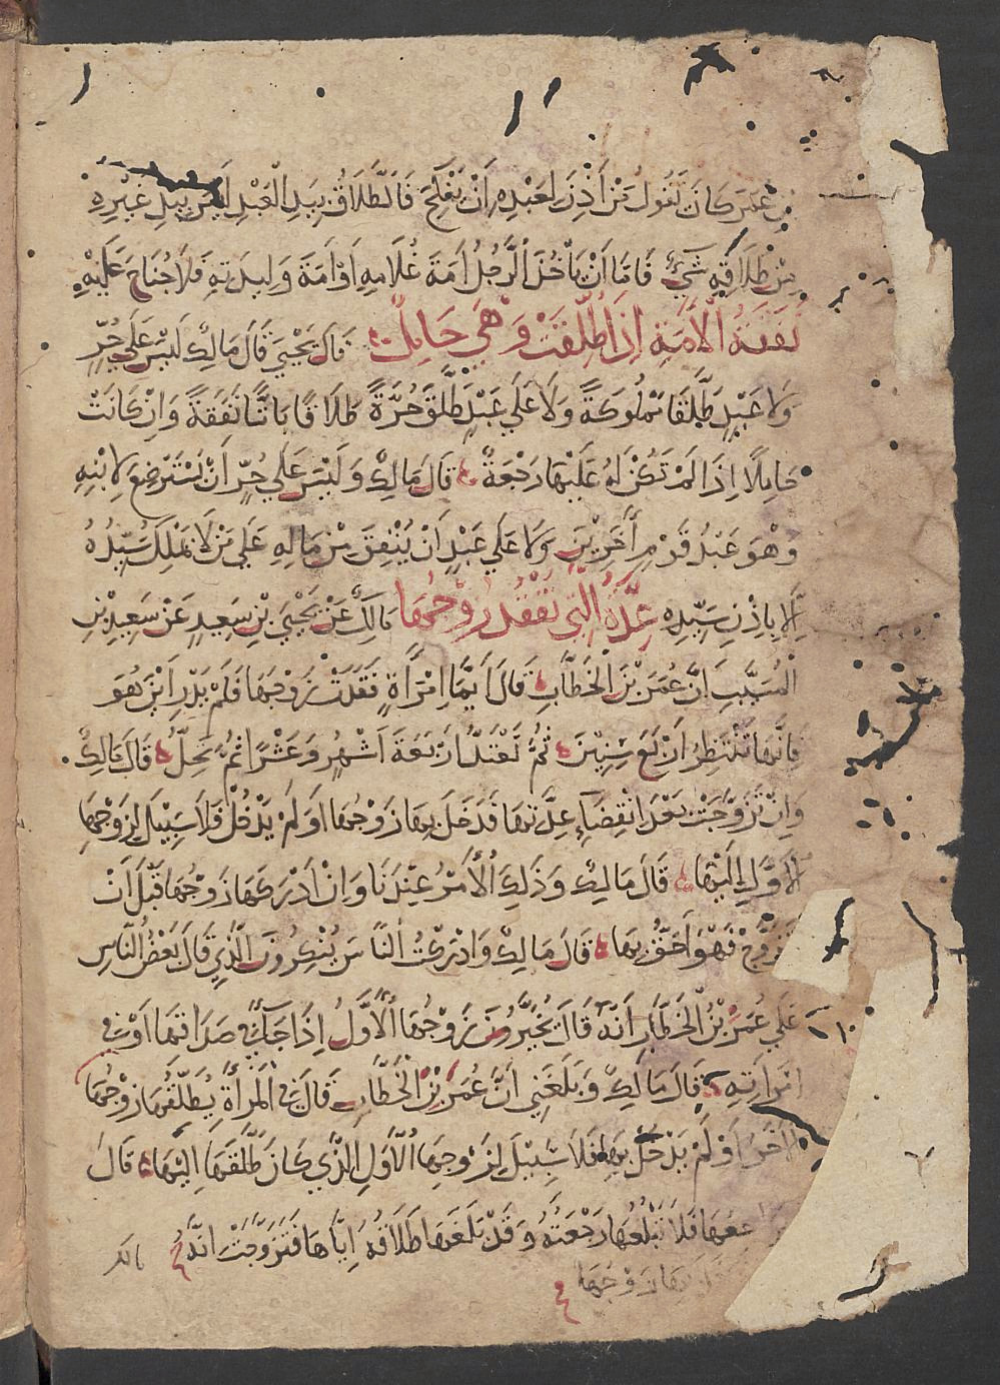 بن عمر كان يَقُولُ مَنْ أَذِنَ لِعَبْدِهِ أَنْ يَنْكِحَ فَالطَّلَاقُ بِيَدِ الْعَبْدِ لَيْسَ بِيَدِ غَيْرِهِ
مِنْ طَلَاقِهِ شَيْءٌ فَامَا اَنْ يَأْخُذَ الرَّجُلُ اَمَةَ غُلَامِهِ اَوْ اَمَةَ وَلِيدَتِهِ فَلَا جُنَاحَ عَلَيْهِ
نَفَقَةُ الْأَمَةِ إِذَا طُلِّقَتْ وَهْيَ حَامِلٌ قَالَ يَحْيَي قَالَ مَالِكٌ لَيْسَ عَلَي حُرٍّ
وَلَا عَبْدٍ طَلَّقَا مَمْلُوكَةً وَلَا عَلَي عَبْدٍ طَلَّقَ حُرَّةً طَلَاقًا بَاتًّا نَفَقَةٌ وَاِنْ كَانَتْ
حَامِلًا اِذَا لَمْ تَكُنْ لَهُ عَلَيْهَا رَجْعَةٌ قَالَ مَالِكٌ وَلَيْسَ عَلَي حُرٍّ اَنْ يَسْتَرْضِعَ لِابْنِهِ
وَهْوَ عَبْدُ قَوْمٍ آخَرِينَ وَلَا عَلَي عَبْدٍ اَنْ يُنْفِقَ مِنْ مَالِهِ عَلَي مَنْ لَا يَمْلِكُ سَيِّدُهُ
اِلَّا بِاِذْنِ سَيِّدِهِ عِدَّةُ الَّتِي تَفْقِدُ زَوْجَهَا مَالِكٌ عَنْ يَحْيَي بْنِ سَعِيدٍ عَنْ سَعِيدِ بْنِ
الْمُسَيَّبِ اَنَّ عُمَرَ بْنَ الْخَطَّابِ قَالَ اَيُّمَا امْرَاَةٍ فَقَدَتْ زَوْجَهَا فَلَمْ تَدْرِ اَيْنَ هُوَ
فَاِنَّهَا تَنْتَظِرُ اَرْبَعَ سِنِينَ ثُمَّ تَعْتَدُّ اَرْبَعَةَ اَشْهُرٍ وَعَشْرًا ثُمَّ تَحِلُّ قَالَ مَالِكٌ
وَاِنْ تَزَوَّجَتْ بَعْدَ انْقِضَاءِ عِدَّتِهَا فَدَخَلَ بِهَا زَوْجُهَا اَوْ لَمْ يَدْخُلْ فَلَا سَبِيلَ لِزَوْجِهَا
الْاَوَّلِ اِلَيْهَا قَالَ مَالِكٌ وَذَلِكَ الْاَمْرُ عِنْدَنَا وَاِنْ اَدْرَكَهَا زَوْجُهَا قَبْلَ اَنْ
تَزَوَّجَ فَهْوَ اَحَقُّ بِهَا قَالَ مَالِكٌ وَاَدْرَكْتُ النَّاسَ يُنْكِرُونَ الَّذِي قَالَ بَعْضُ النَّاسِ
عَلَي عُمَرَ بْنِ الْخَطَّابِ اَنَّهُ قَالَ يُخَيَّرُ زَوْجُهَا الْاَوَّلُ اِذَا جَاءَ فِي صَدَاقِهَا اَوْ فِي
امْرَاَتِهِ قَالَ مَالِكٌ وَبَلَغَنِي اَنَّ عُمَرَ بْنَ الْخَطَّابِ قَالَ فِي الْمَرْاَةِ يُطَلِّقُهَا زَوْجُهَا
الْآخَرُ اَوْ لَمْ يَدْخُلْ بِهَا فَلَا سَبِيلَ لِزَوْجِهَا الْاَوَّلِ الَّذِي كَانَ طَلَّقَهَا اِلَيْهَا قَالَ
فَلَا تَبْلُغُهَا رَجْعَتُهُ وَقَدْ بَلَغَهَا طَلَاقُهُ اِيَّاهَا فَتَزَوَّجَتْ اَنَّهُ
بِهَا زَوْجُهَا